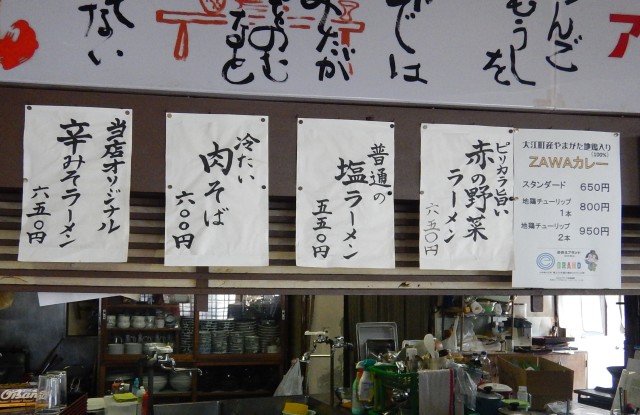 てない
をのむ
なとど
みだが
では
もうし
を
んご
ア
当店オリジナル
辛みそラーメン
六五〇円
冷たい
肉そば
六〇〇円
普通の
塩ラーメン
五五〇円
ピリカラ旨い
赤の野菜
ラーメン
六五〇円
大江町産やまがた地鶏入り
(100%)
ZAWAカレー
スタンダード 650円
地鶏チューリップ 1本 800円
地鶏チューリップ 2本 950円
BRAND